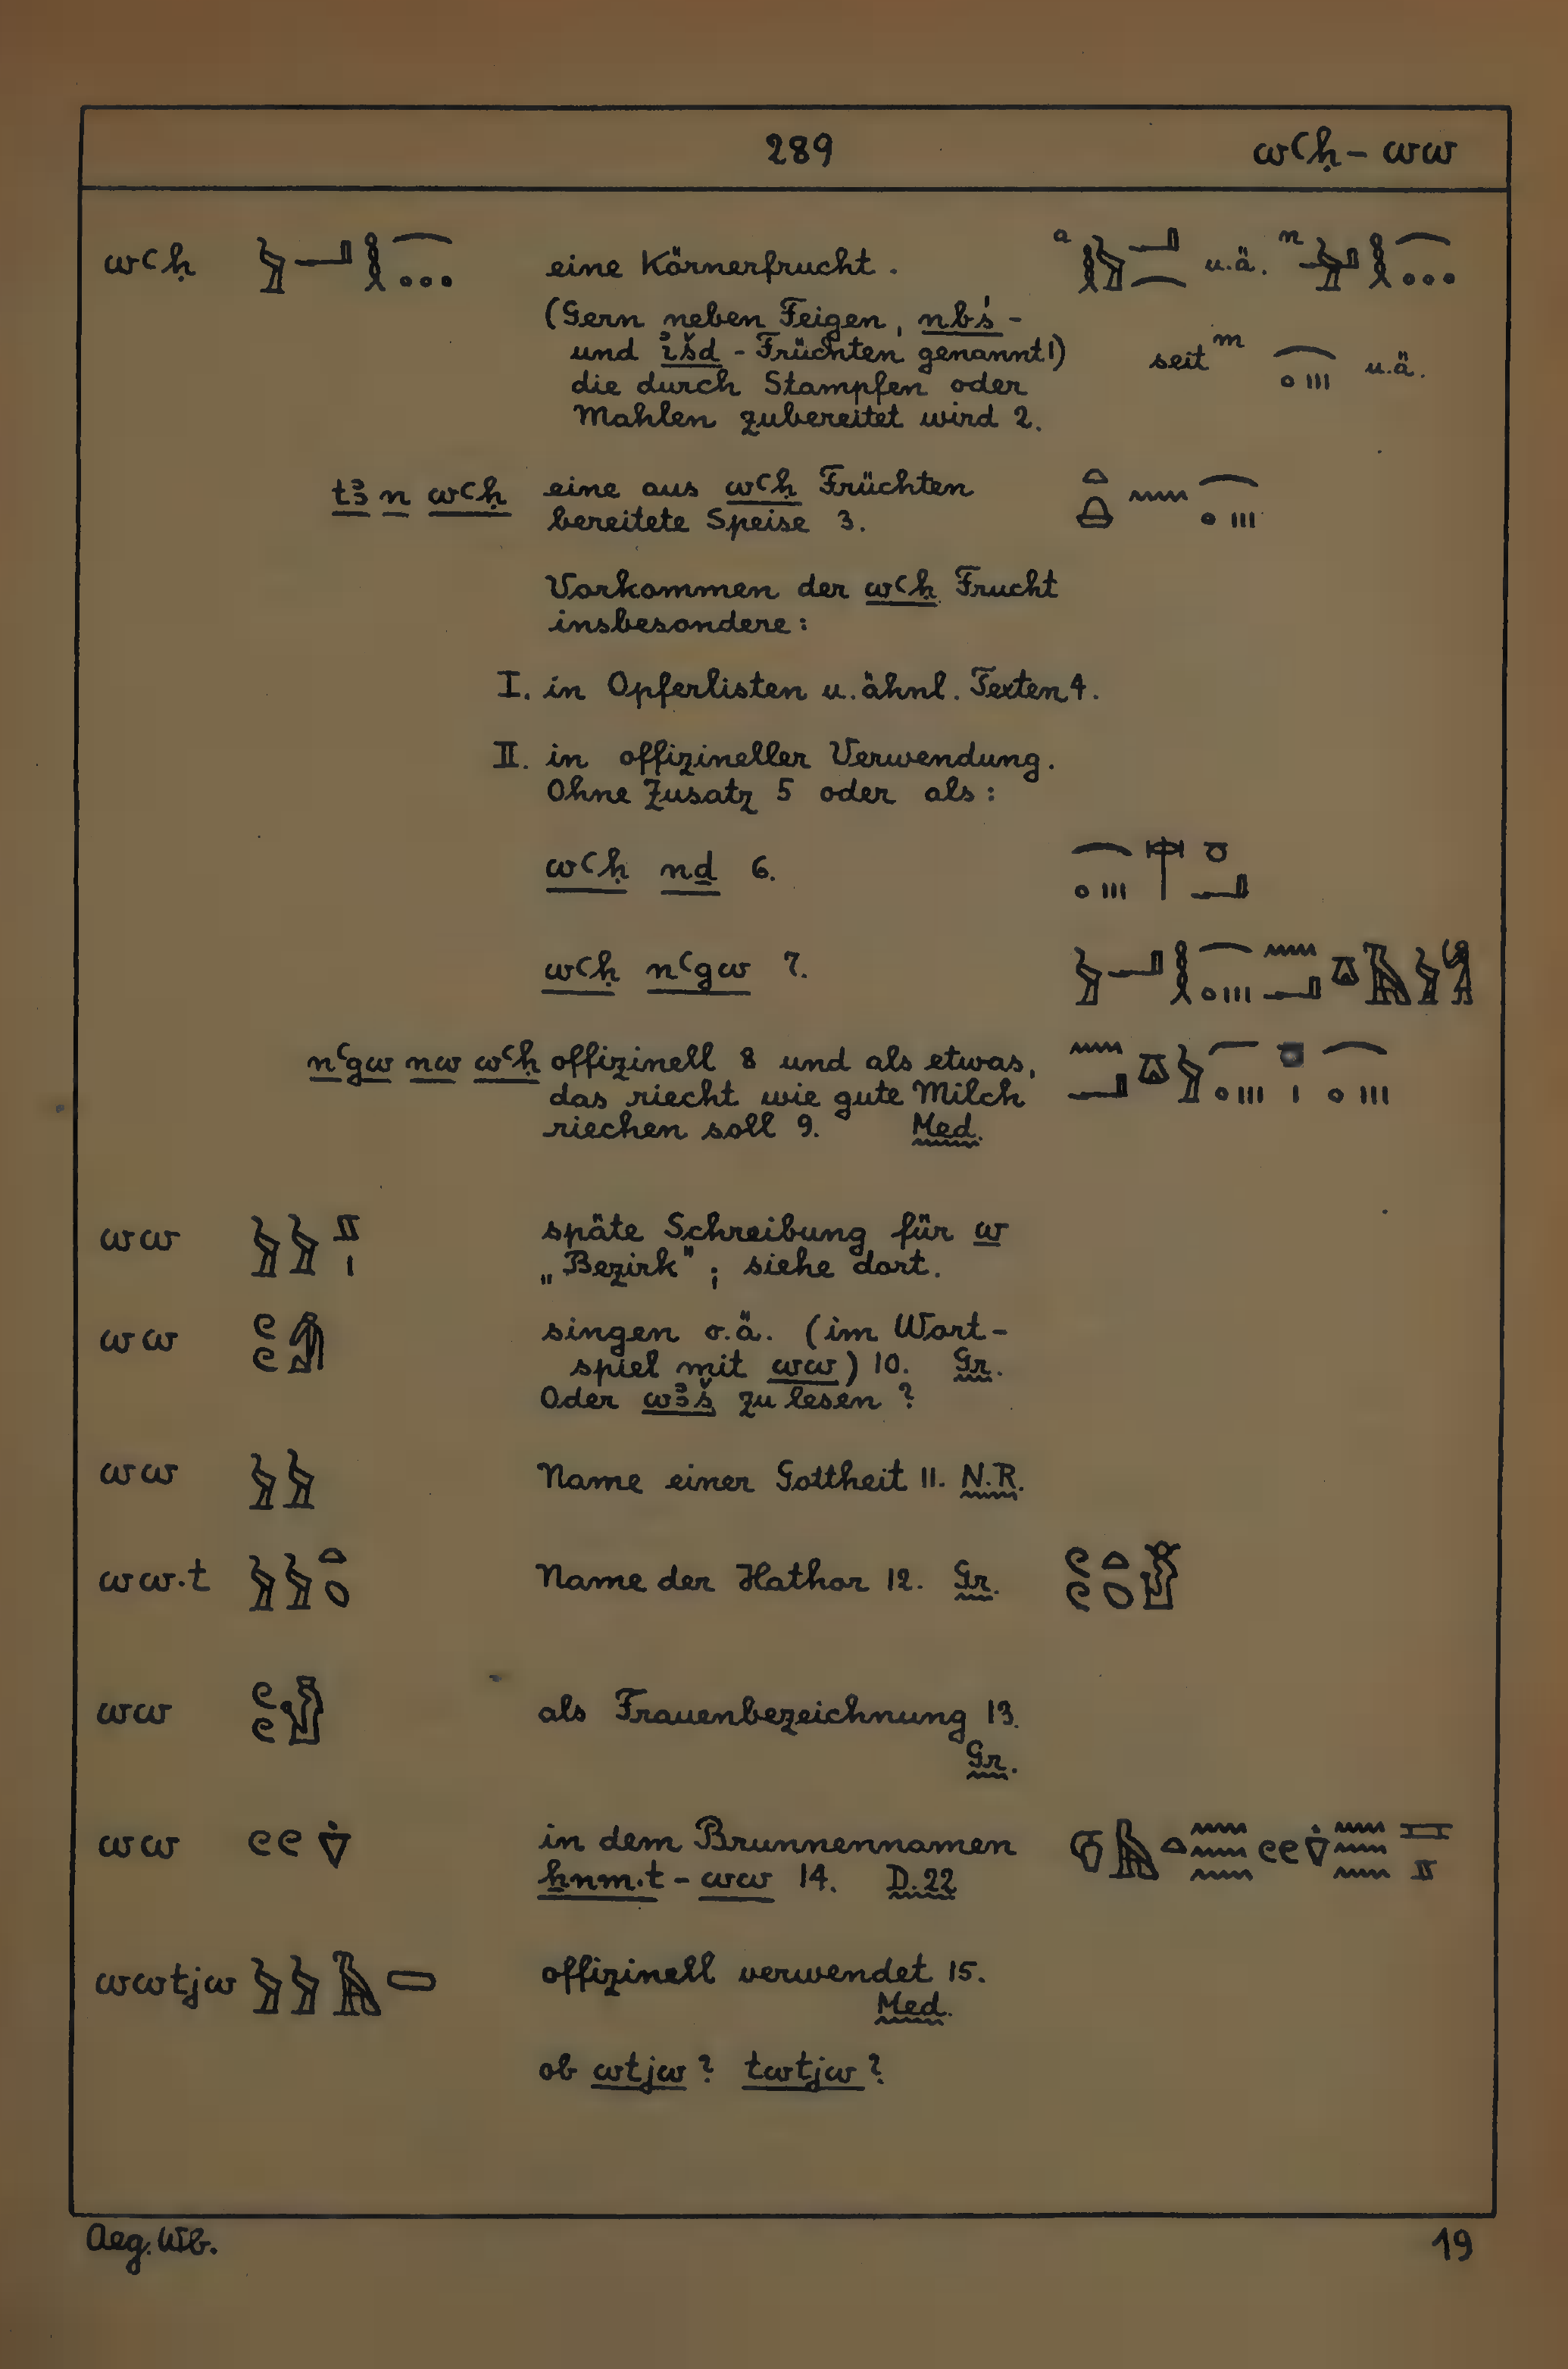 289 wꜥḥ - ww
wꜥḥ 𓅱𓂝𓎛 eine Körnerfrucht. a u.ä. n
(Gern neben Feigen, nbś-
und ỉšd-Früchten genannt1) seit m u.ä.
die durch Stampfen oder
Mahlen zubereitet wird 2.
tꜣ n wꜥḥ eine aus wꜥḥ Früchten
bereitete Speise 3.
Vorkommen der wꜥḥ Frucht
insbesondere:
I. in Opferlisten u. ähnl. Texten 4.
II. in offizineller Verwendung.
Ohne Zusatz 5 oder als:
wꜥḥ nḏ 6.
wꜥḥ nꜥgw 7.
nꜥgw nw wꜥḥ offizinell 8 und als etwas,
das riecht wie gute Milch
riechen soll 9. Med.
ww 𓅱𓅱 späte Schreibung für w
„Bezirk"; siehe dort.
ww 𓏲𓏲 singen o.ä. (im Wort-
spiel mit ww) 10. Gr.
Oder wꜣš zu lesen?
ww 𓅱𓅱 Name einer Gottheit 11. N.R.
ww.t 𓅱𓅱𓏏𓆇 Name der Hathor 12. Gr.
ww 𓏲𓏲 als Frauenbezeichnung 13.
Gr.
ww 𓏲𓏲 in dem Brunnennamen
ẖnm.t-ww 14. D.22
wwtjw 𓅱𓅱 offizinell verwendet 15.
Med.
ob wtjw? twtjw?
Aeg. Wb. 19